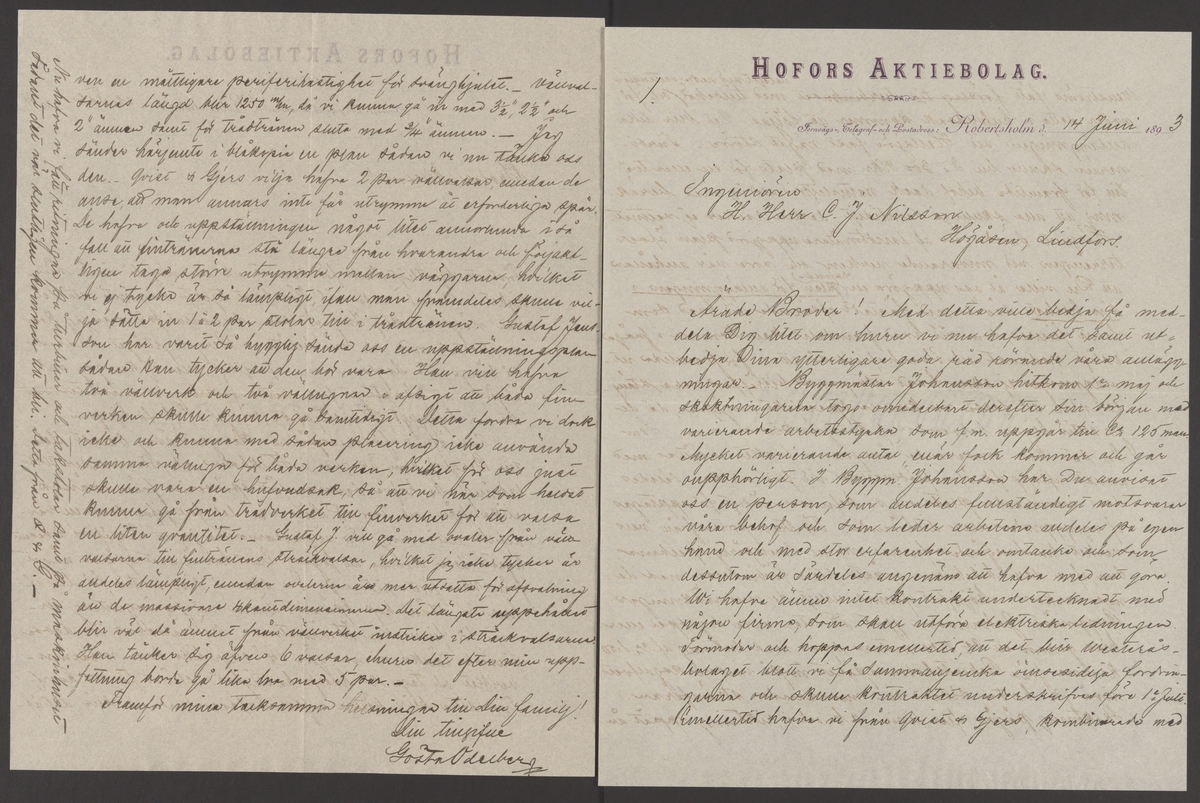 HOFORS AKTIEBOLAG.
1.
Jernvägs-, Telegraf- och Postadress: Robertsholm d. 14 Juni 1893
Ingeniören
H. Herr C. J. Nilsson
Högåsen, Lindfors.
Ärade Broder! Med detta ville bedja få med-
dela Dig litet om huru vi nu hafva det samt ut-
bedja Dina ytterligare goda råd rörande våra anlägg-
ningar. – Byggmäster Johansson hitkom 1a maj och
schaktningarna togo omedelbart derefter sin början med
varierande arbetsstyrka som f.n. uppgår till Ca 125 man
Mycket varierande antal enär folk kommer och går
oupphörligt. I Byggm. Johansson har Du anvisat
oss en person, som alldeles fullständigt motsvarar
våra behof och som leder arbetena alldeles på egen
hand och med stor erfarenhet och omtanke och som
dessutom är särdeles angenäm att hafva med att göra.
Vi hafva ännu intet kontrakt undertecknadt med
någon firma, som skall utföra elektriska ledningen
Förmodar och hoppas emellertid, att det blir Westerås-
bolaget blott vi få sammanjemka ömsesidiga fordrin-
garna och skulle kontraktet underskrifvas före 1a Juli.
Emellertid hafva vi från Qvist & Gjers, kombinerade med
ven en måttligare periferihastighet för svänghjulet. – Vällval-
sarnas längd blir 1250 m/m, så vi kunna gå ner med 3½", 2½" och
2" ämnen samt för trådtrånen sluta med ¾" ämnen. – Jag
sänder härjemte i blåkopia en plan sådan vi nu tänka oss
den. – Qvist & Gjers vilja hafva 2 par vällvalsar, emedan de
anse att man annars inte får utrymme åt erforderliga spår.
De hafva ock uppställningen något litet annorlunda i så
fall att finträmarna stå längre från hvarandra och följakt-
ligen taga större utrymme mellan väggarne hvilket
vi ej tycka är så lämpligt ifall man framdeles skulle vil-
ja sätta in 1 à 2 par stolar till i trådtrånen. Gustaf Jans-
son har varit så hygglig sända oss en uppställningsplan
sådan han tycker att den bör vara. Han vill hafva
två vällverk och två vällugnar i afsigt att båda fin-
verken skulle kunna gå samtidigt. Detta fordra vi dock
icke och kunna med sådan placering icke använda
samma vällugn för båda verken, hvilket för oss just
skulle vara en hufvudsak, så att vi när som helst
kunna gå från trådverket till finverket för att valsa
en liten qvantitet. – Gustaf J. vill gå med ovaler från väll-
valsarna till fintrånens sträckvalsar, hvilket jag icke tycker är
alldeles lämpligt, emedan ovalerna äro mer utsatta för afsvalning
än de massivare 4kantdimensionerna. Det längsta uppehållet
blir väl då ämnet från vällverket instickes i sträckvalsarna.
Han tänker sig äfven 6 valsar, ehuru det efter min upp-
fattning borde gå lika bra med 5 par. –
Framför mina tacksamma helsningar till Din familj!
Din tillgifne
Gösta Odelberg
Nu hafva vi full ritningar för turbiner och takstolar samt på maskinhuset
sådant det var slutligen kommer att bli. Detta från Q. & G. –